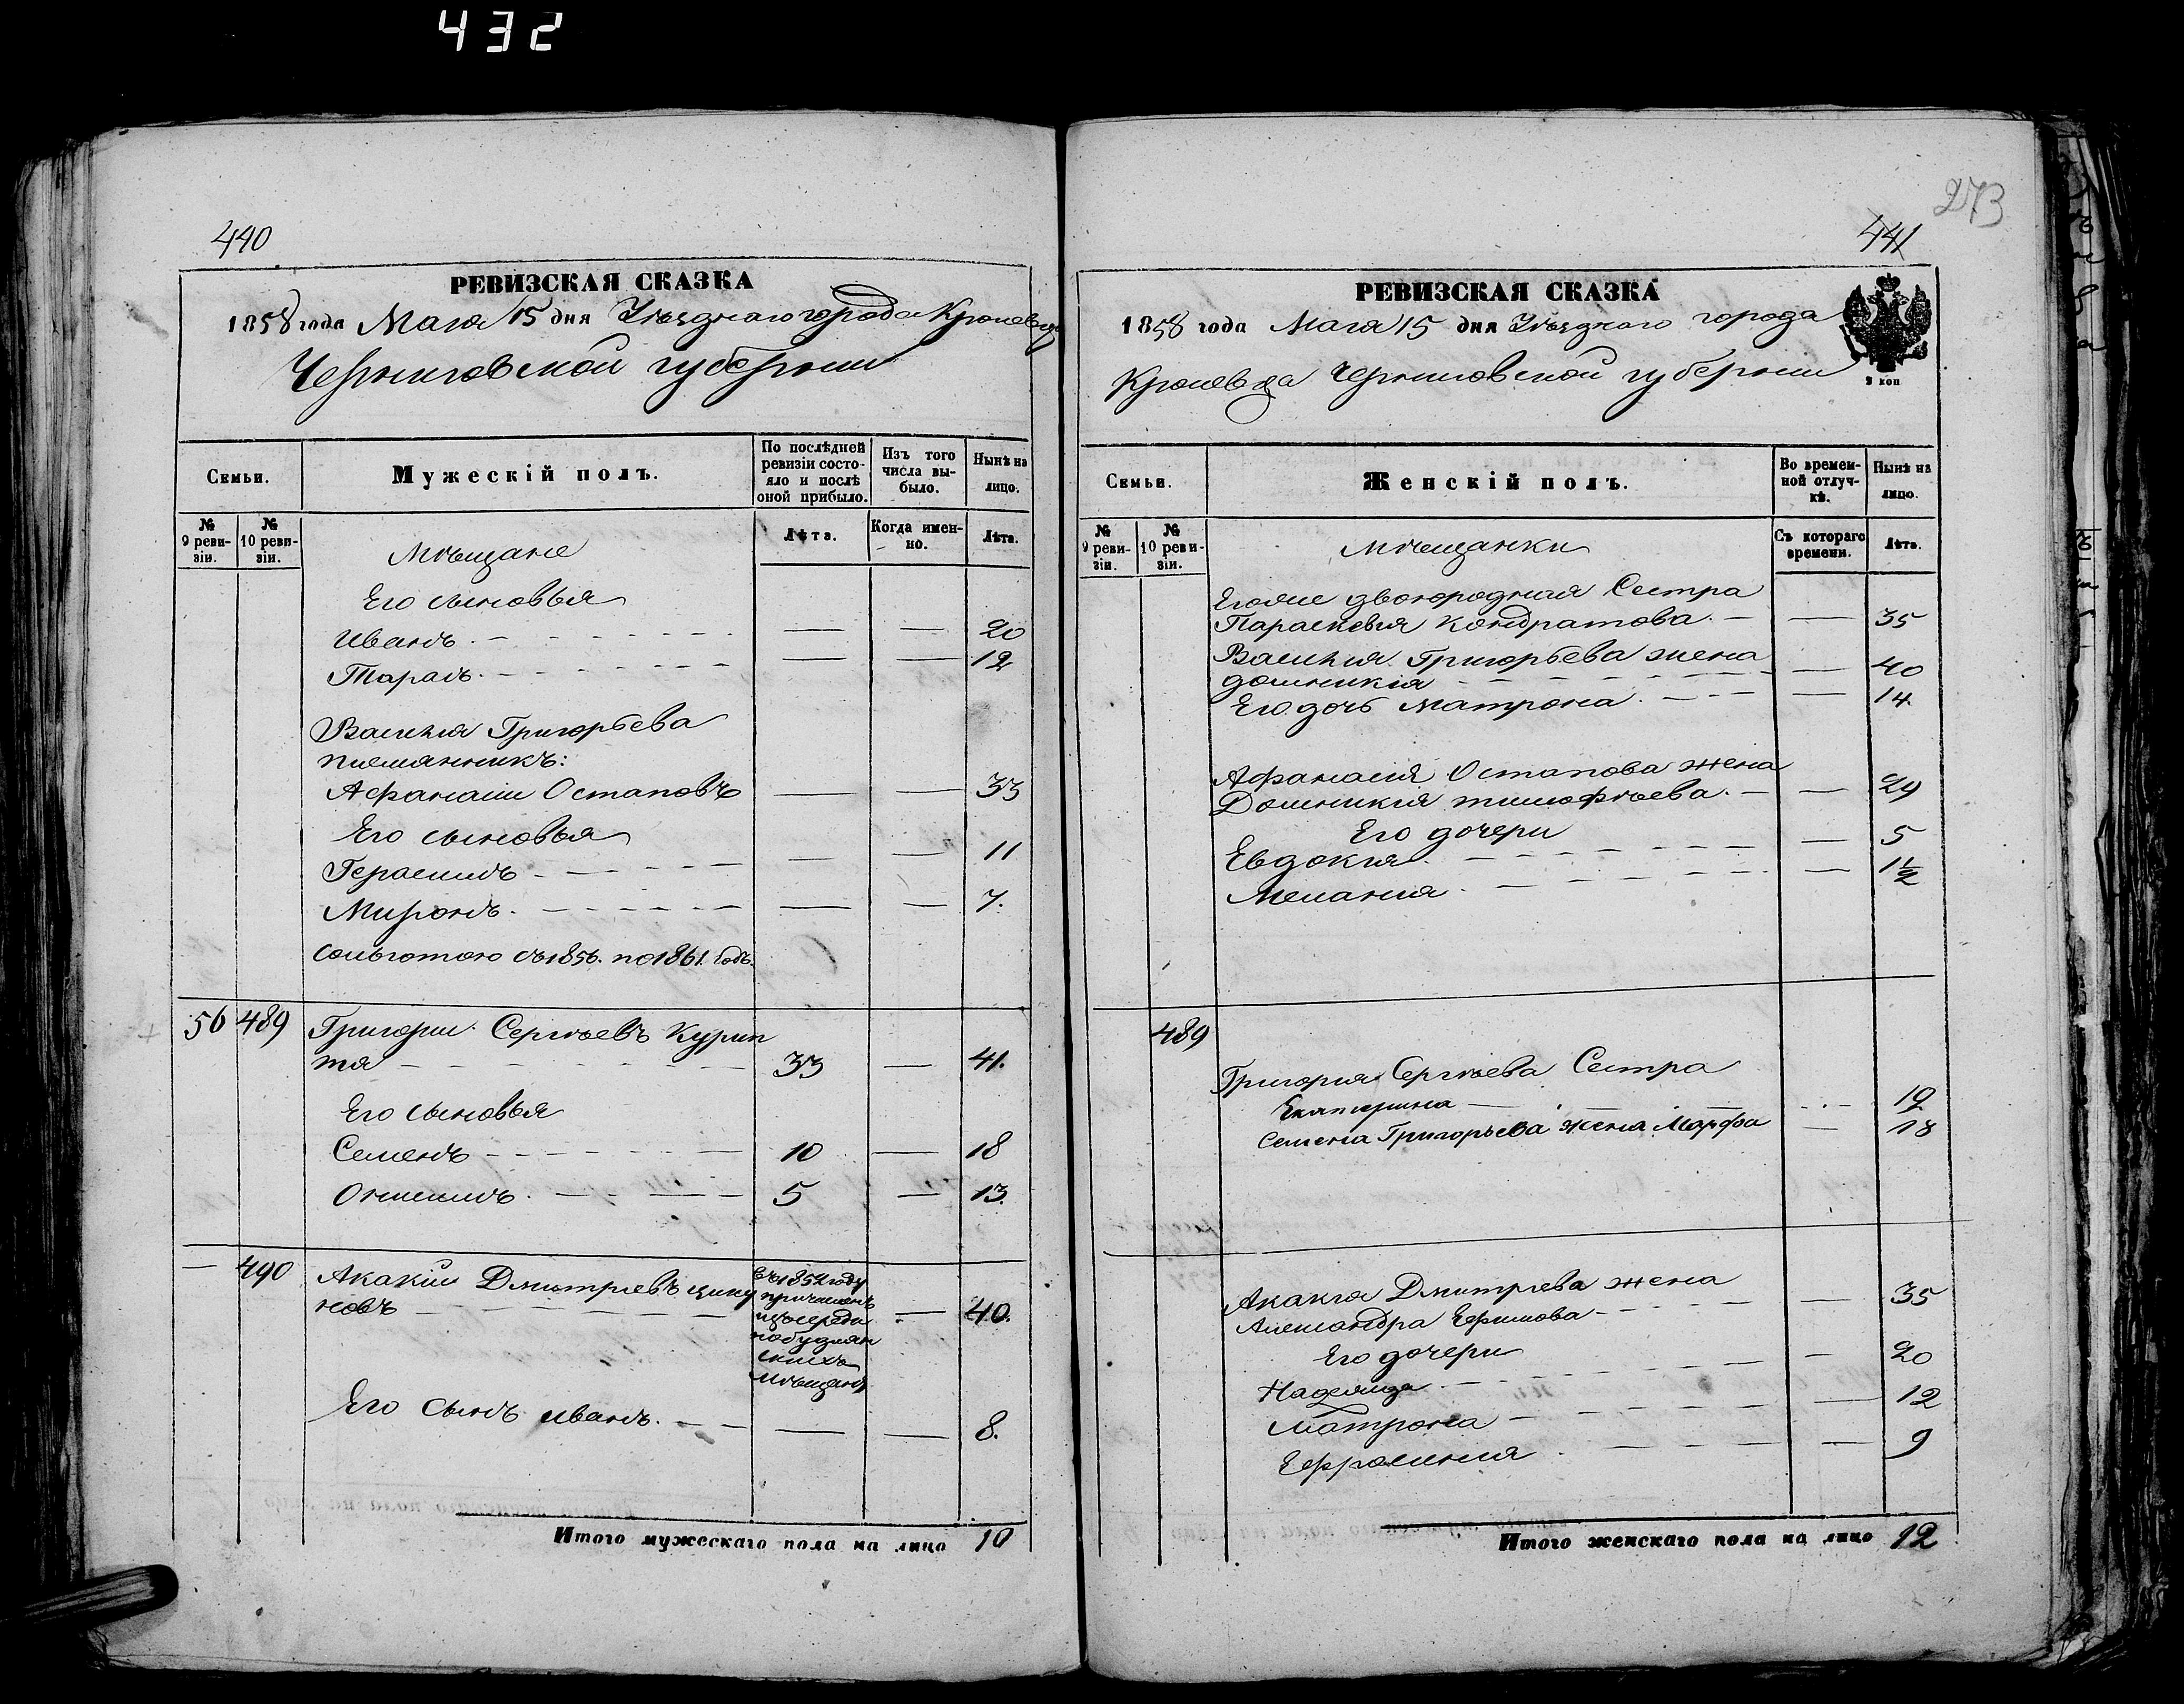 432
440
РЕВИЗСКАЯ СКАЗКА
1858 года Мая 15 дня Уѣзднаго города Кролевца
Черниговской губернии
Семьи.
Мужескій полъ.
По послѣдней ревизіи состо-
яло и послѣ оной прибыло.
Изъ того числа вы-
было.
Нынѣ на лицо.
№ 9 реви-
зіи.
№ 10 реви-
зіи.
Лѣта.
Когда имен-
но.
Лѣта.
Мѣщане
Его сыновья
Иванъ — — 20
Тарасъ — — 12
Василия Григорьева
племянникъ:
Афанасии Остаповъ — — 33
Его сыновья
Герасимъ — — 11
Миронъ — — 7.
сольготою съ 1856. по 1861. годъ.
56 489 Григории Сергѣевъ Курип
тя 33 — 41.
Его сыновья
Семенъ 10 — 18
Онисимъ 5 — 13.
— 490 Акакии Дмитриевъ цику
новъ — 40.
Въ 1852 году
причисленъ
мѣщанъ
Его сынъ иванъ. — — 8.
Итого мужескаго пола на лицо 10
273
441
РЕВИЗСКАЯ СКАЗКА
1858 года Мая 15 дня Уѣзднаго города
Кролевца Черниговской губернии
2 коп
Семьи.
Женскій полъ.
Во времен-
ной отлуч-
кѣ.
Нынѣ на лицо.
№ 9 реви-
зіи.
№ 10 реви-
зіи.
Съ котораго времени.
Лѣта.
Мѣщанки
Егоже двоюродная Сестра
Параскевия Кондратова — 35
Василия Григорьева жена
домникия — 40
Его дочь матрона — 14.
Афанасия Остапова жена
Домникия тимофѣева — 29
Его дочери
Евдокия — 5
Мелания — 1½
489
Григория Сергѣева Сестра
Екатерина — 19
Семена Григорьева жена Марфа — 18
Акакия Дмитриева жена
Александра Ефимова — 35
Его дочери
Надежда — 20
Матрона — 12
Ефросиния — 9
Итого женскаго пола на лицо 12